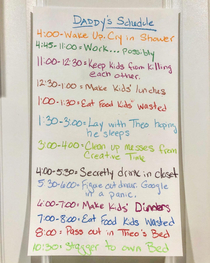 DADDY's Schedule
4:00-Wake Up, Cry in Shower
4:45-11:00 = Work... possibly
11:00-12:30 = Keep Kids from Killing
each other.
12:30-1:00 = Make Kids' lunches
1:00-1:30 = Eat Food Kids' Wasted
1:30-3:00 = Lay with Theo hoping
he sleeps
3:00-4:00 = Clean up messes from
Creative Time
4:00-5:30 = Secretly drink in closet
5:30-6:00 = Figure out dinner. Google
in a panic.
6:00-7:00 = Make Kids' Dinners
7:00-8:00 = Eat Food Kids Wasted
8:00 = Pass out in Theo's Bed
10:30 = Stagger to own Bed